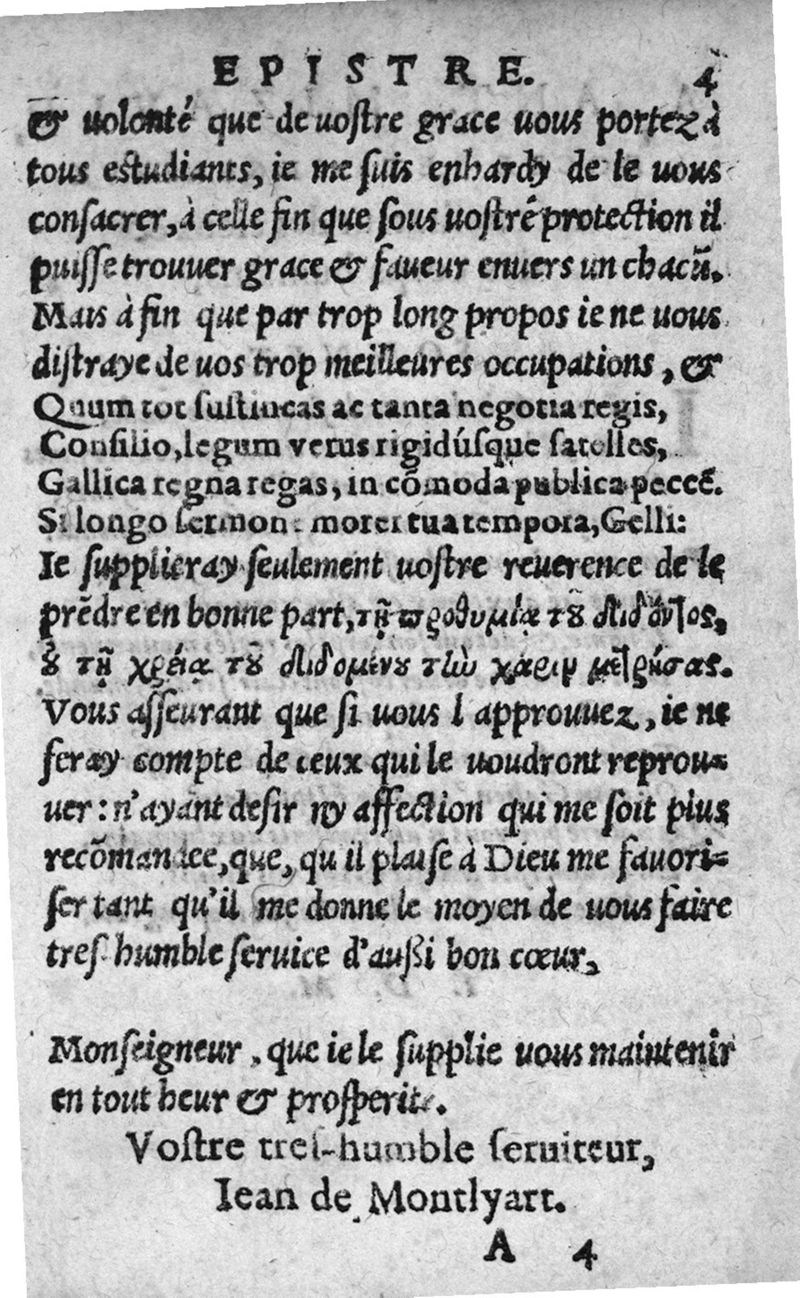 EPISTRE. 4
& uolonté que de uoſtre grace uous portez à
tous eſtudiants, ie me ſuis enhardy de le uous
conſacrer, à celle fin que ſous uoſtre protection il
puiſſe trouuer grace & faueur enuers un chacũ.
Mais à fin que par trop long propos ie ne uous
diſtraye de uos trop meilleures occupations, &
Quum tot ſuſtineas ac tanta negotia regis,
Conſilio, legum verus rigidúſque ſatelles,
Gallica regna regas, in cõmoda publica peccẽ.
Si longo ſermone morer tua tempora, Gelli:
Ie ſupplieray ſeulement uoſtre reuerence de le
prẽdre en bonne part, τῇ ϖροθυμίᾳ τȣ͂ διδόντος,
ȣ̓ τῇ χρείᾳ τȣ͂ διδομένȣ τὼ χάριν μετρήσας.
Vous aſſeurant que ſi uous l approuuez, ie ne
feray compte de ceux qui le uoudront reprou-
uer: n'ayant deſir ny affection qui me ſoit plus
recõmandee, que, qu il plaiſe à Dieu me fauori-
ſer tant qu'il me donne le moyen de uous faire
treſ humble ſeruice d'auſſi bon cœur,
Monſeigneur, que ie le ſupplie uous maintenir
en tout heur & proſperité.
Voſtre treſ-humble ſeruiteur,
Iean de Montlyart.
A 4